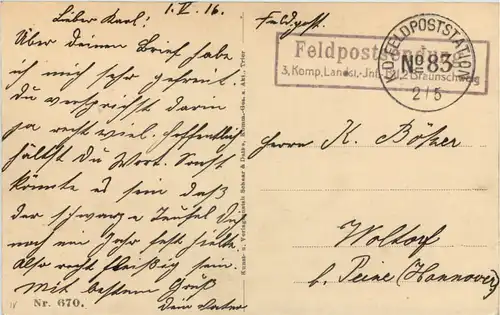 Lieber Karl!
1. V. 16.
Über deinen Brief habe
ich mich sehr gefreut.
Du versprichst darin
ja recht viel. Hoffentlich
hältst Du Wort. Sonst
könnte es sein daß
der schwarze Teufel Dich
noch ein Jahr fest hielte.
Also recht fleißig sein.
Mit bestem Gruß
Dein Vater
Nr. 670.
Kunst- u. Verlagsanstalt Schaar & Dathe, Komm.-Ges. a. Akt., Trier
Feldpost.
Feldpostsendung
3. Komp. Landst.-Inf. Btl. 2 Braunschweig
K.D. FELDPOSTSTATION
No 83
2/5
Herrn K. Böker
Woltorf
b. Peine (Hannover)